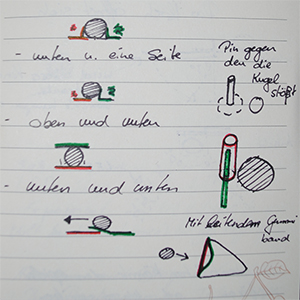 - unten u. eine Seite
Pin gegen
den die
Kugel
stößt
- oben und unten
- unten und unten
Mit leitendem Gummi
band